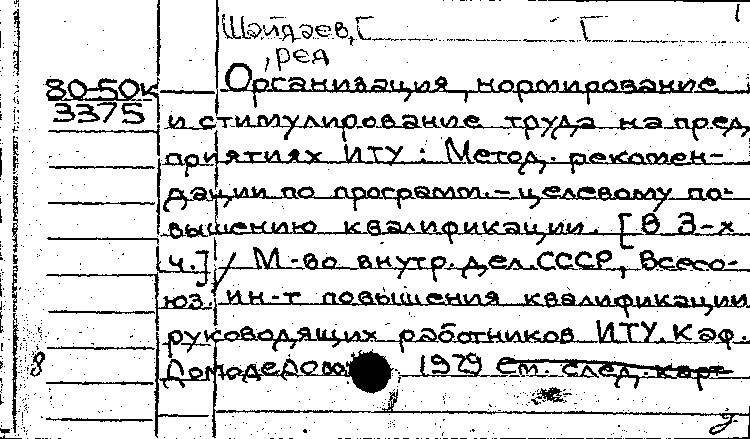 Шайдаев, [ [
, ред
80-50к Организация, нормирование
3375 и стимулирование труда на пред
приятиях ИТУ : Метод. рекомен-
дации по программ.-целевому по-
вышению квалификации. [В 3-х
ч.] / М-во внутр. дел. СССР, Всесо-
юз. ин-т повышения квалификации
руководящих работников ИТУ. Каф.
8 1979 См. след. карт